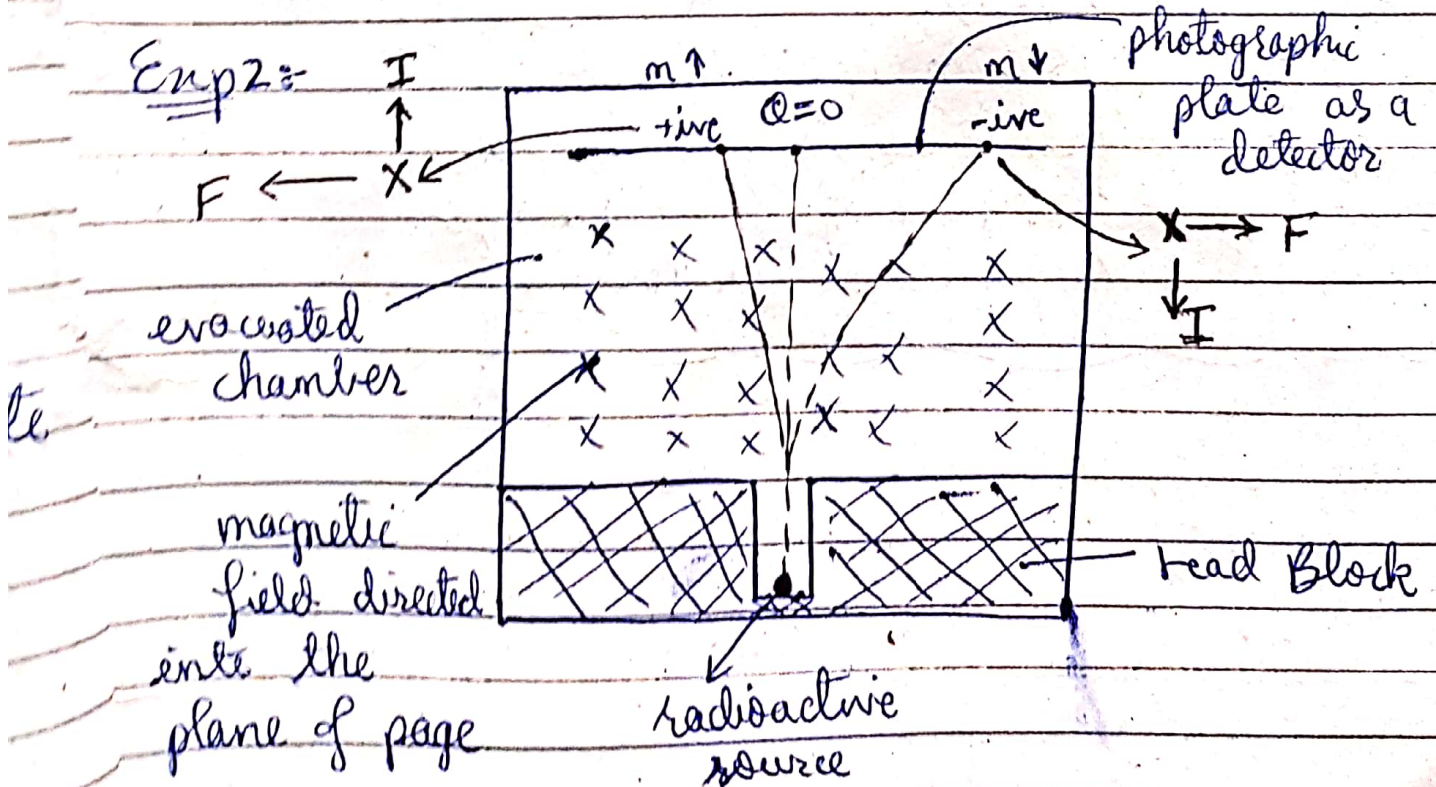 Exp2:-
I
m ↑
m ↓
photographic
plate as a
detector
+ive
Q=0
-ive
F ← X
X → F
I
evacuated
chamber
te
magnetic
field directed
into the
plane of page
radioactive
source
Lead Block